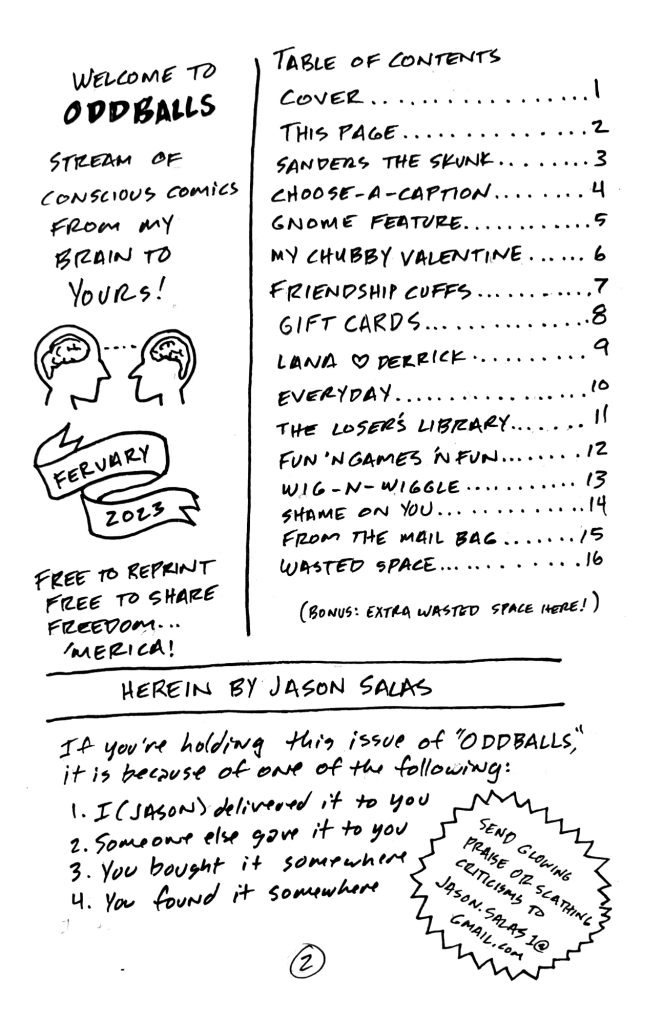 WELCOME TO
ODDBALLS
STREAM OF
CONSCIOUS COMICS
FROM MY
BRAIN TO
YOURS!
FERVARY
2023
FREE TO REPRINT
FREE TO SHARE
FREEDOM...
'MERICA!
TABLE OF CONTENTS
COVER..................1
THIS PAGE..............2
SANDERS THE SKUNK........3
CHOOSE-A-CAPTION........4
GNOME FEATURE...........5
MY CHUBBY VALENTINE......6
FRIENDSHIP CUFFS..........7
GIFT CARDS..............8
LANA ♡ DERRICK..........9
EVERYDAY................10
THE LOSER'S LIBRARY.......11
FUN 'N GAMES 'N FUN.......12
WIG-N-WIGGLE..........13
SHAME ON YOU.............14
FROM THE MAIL BAG.......15
WASTED SPACE............16
(BONUS: EXTRA WASTED SPACE HERE!)
HEREIN BY JASON SALAS
If you're holding this issue of "ODDBALLS,"
it is because of one of the following:
1. I (JASON) delivered it to you
2. Someone else gave it to you
3. You bought it somewhere
4. You found it somewhere
SEND GLOWING
PRAISE OR SCATHING
CRITICISMS TO
JASON.SALAS1@
GMAIL.com
2